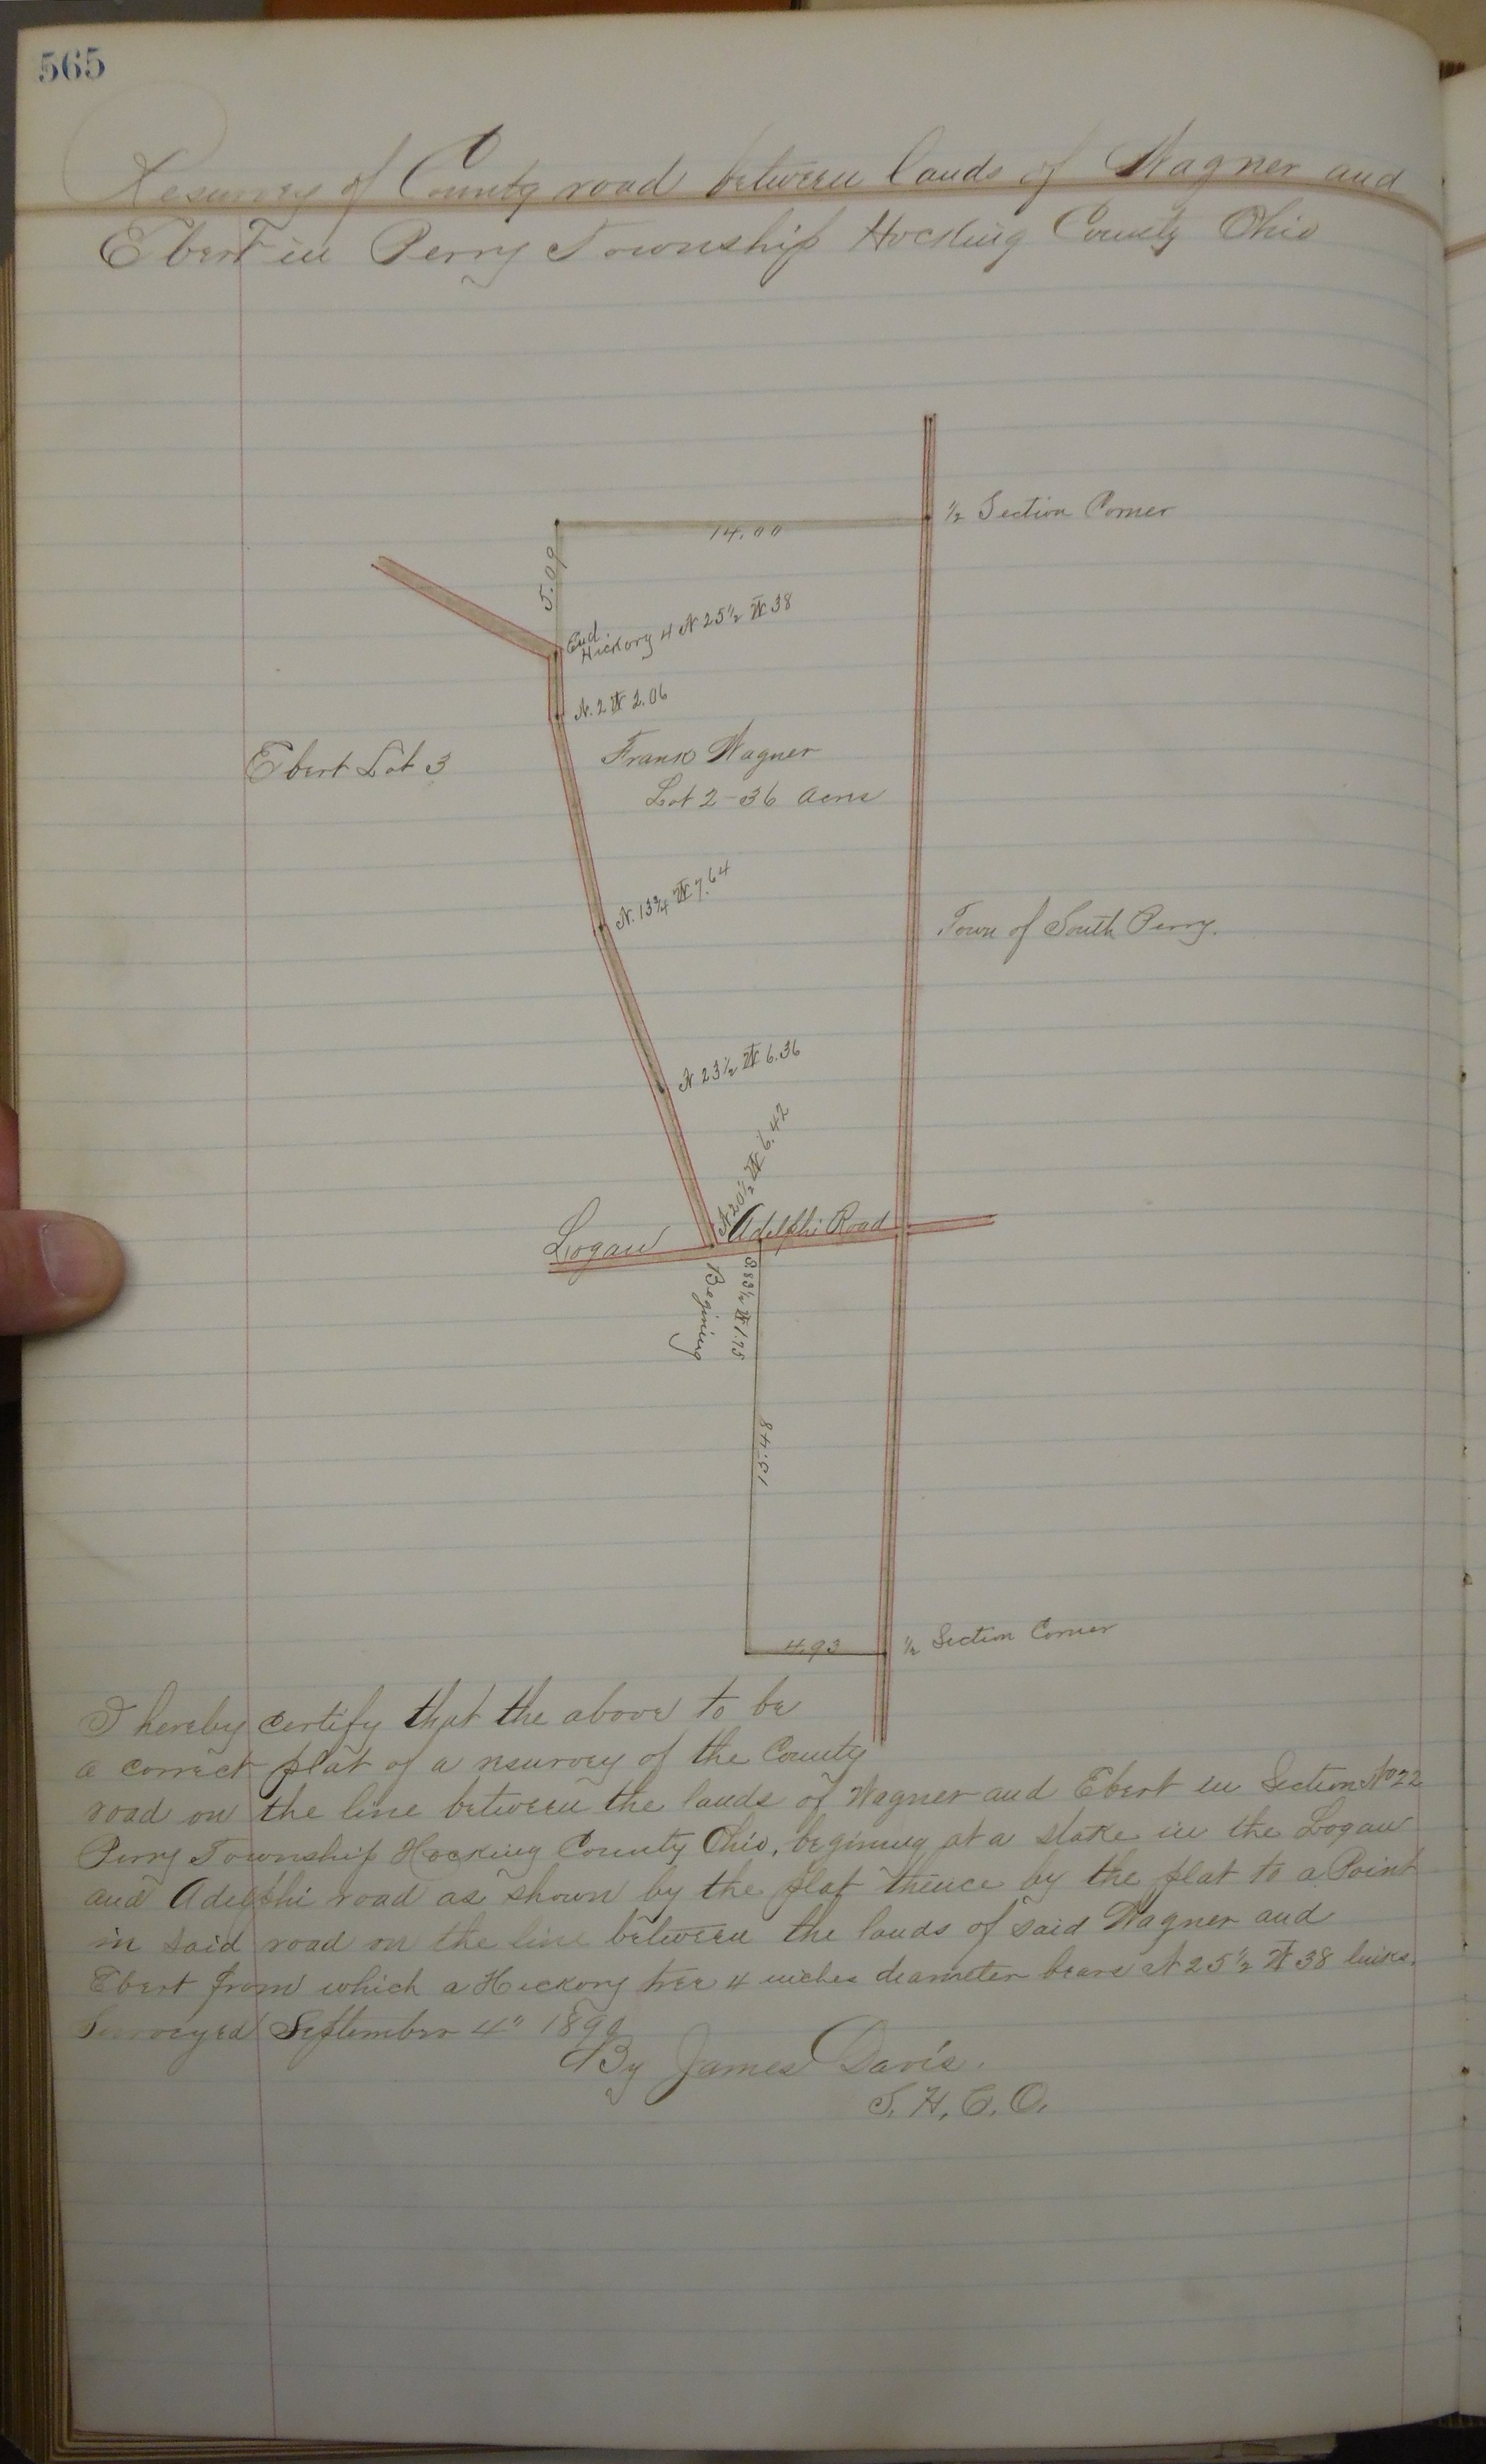 565
Resurvey of County road between lands of Wagner and
Ebert in Perry Township Hocking County Ohio
½ Section Corner
14.00
5.09
End.
Hickory 4 N 25½ W 38
N. 2 W 2.06
Ebert Lot 3
Frank Wagner
Lot 2-36 acres
N. 13¾ W 7.64
Town of South Perry.
N 23½ W 6.36
N 20½ W 6.42
Logan Adelphi Road
Begining
S 83½ W 1.75
15.48
4.93
½ Section Corner
I hereby certify that the above to be
a correct plat of a resurvey of the County
road on the line between the lands of Wagner and Ebert in Section No 22
Perry Township Hocking County Ohio, begining at a stake in the Logan
and Adelphi road as shown by the plat thence by the plat to a Point
in said road on the line between the lands of said Wagner and
Ebert from which a Hickory tree 4 inches diameter bears N 25½ W 38 links.
Surveyed September 4" 1890
By James Davis.
S. H. C. O.